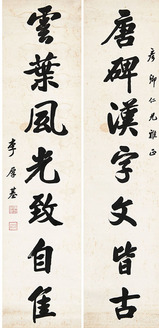 彦卿仁兄雅正
唐碑漢字文皆古
雲葉風光致自隹
李厚基